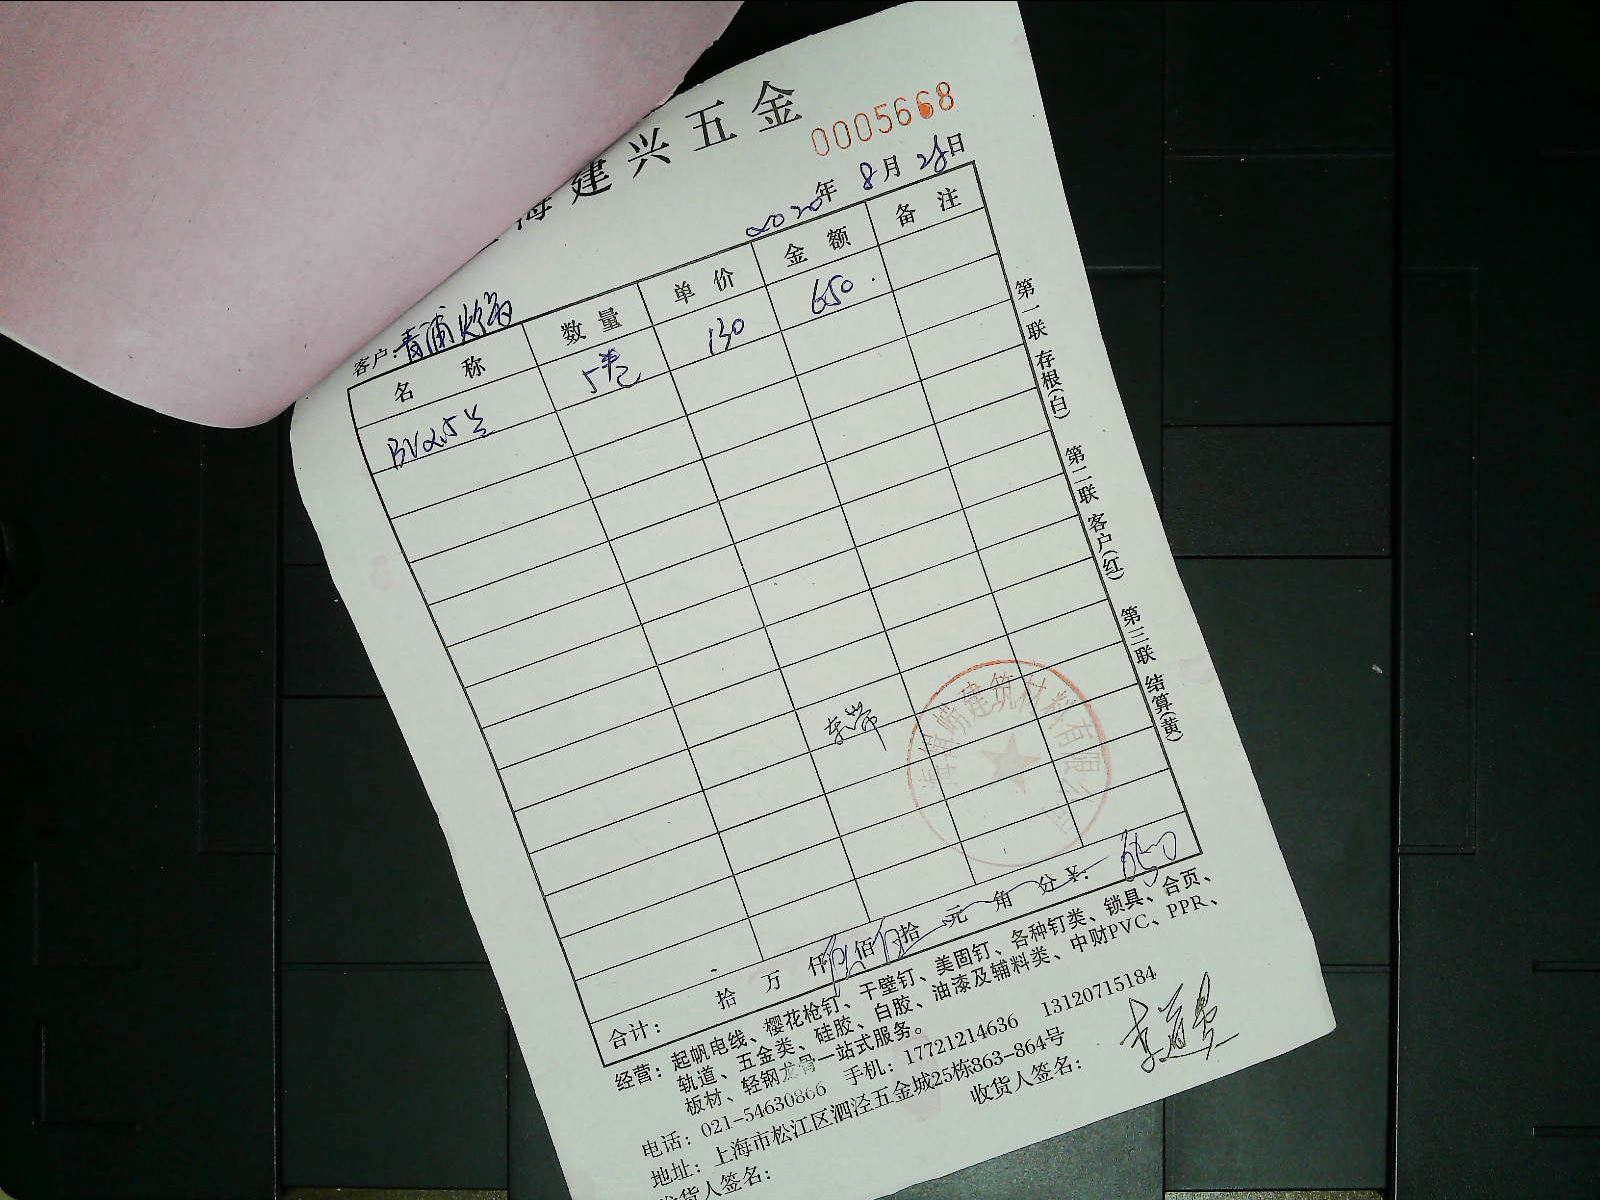 海建兴五金
0005668
2020年 8月 28日
客户：青浦
名 称 数 量 单 价 金 额 备 注
BV2.5 5卷 130 650.
第一联 存根(白) 第二联 客户(红) 第三联 结算(黄)
建筑材料有限公司
合计： 拾 万 仟 陆佰 伍拾 元 角 分 ¥: 650
经营：起帆电线、樱花枪钉、干壁钉、美固钉、各种钉类、锁具、合页、
轨道、五金类、硅胶、白胶、油漆及辅料类、中财PVC、PPR、
板材、轻钢龙骨一站式服务。
电话：021-54630866 手机：17721214636 13120715184
地址：上海市松江区泗泾五金城25栋863-864号
发货人签名： 收货人签名：